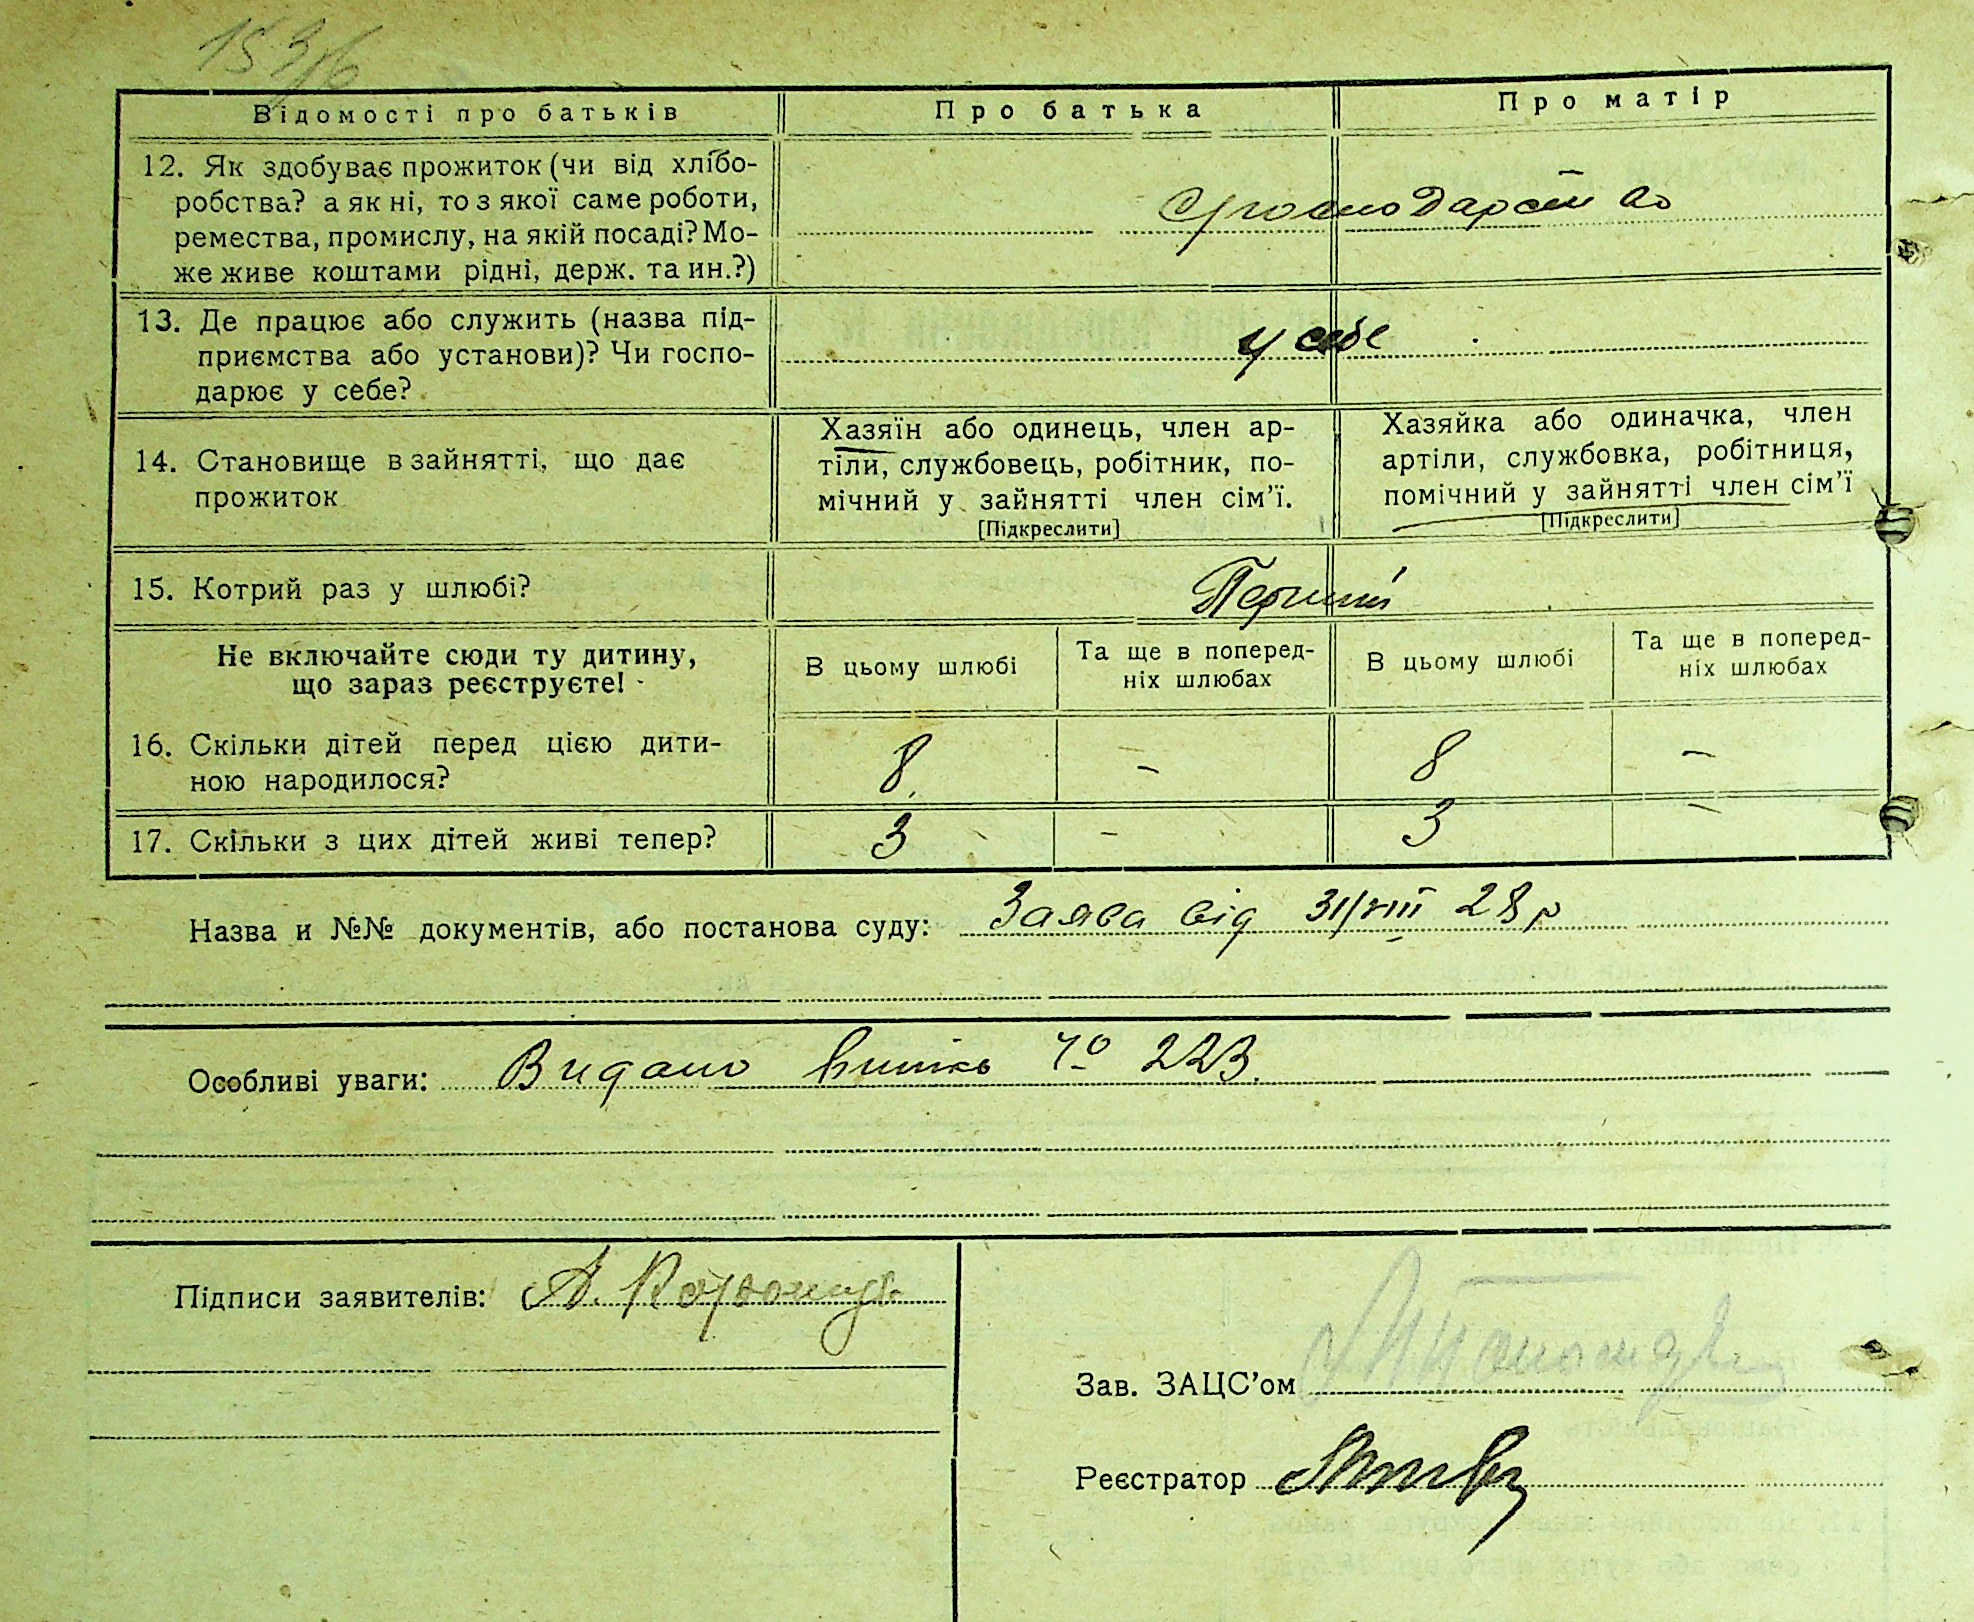 153/6
Відомості про батьків
Про батька
Про матір
12. Як здобуває прожиток (чи від хлібо-
робства? а як ні, то з якої саме роботи,
ремества, промислу, на якій посаді? Мо-
же живе коштами рідні, держ. та ин.?)
13. Де працює або служить (назва під-
приємства або установи)? Чи госпо-
дарює у себе?
у себе
14. Становище в зайнятті, що дає
прожиток
Хазяїн або одинець, член ар-
тіли, службовець, робітник, по-
мічний у зайнятті член сім'ї.
[Підкреслити]
Хазяйка або одиначка, член
артіли, службовка, робітниця,
помічний у зайнятті член сім'ї
[Підкреслити]
15. Котрий раз у шлюбі?
Перший
Не включайте сюди ту дитину,
що зараз реєструєте!
В цьому шлюбі
Та ще в поперед-
ніх шлюбах
В цьому шлюбі
Та ще в поперед-
ніх шлюбах
16. Скільки дітей перед цією дити-
ною народилося?
8 – 8 –
17. Скільки з цих дітей живі тепер?
3 – 3 –
Назва и №№ документів, або постанова суду: Заява від 31/VIII 28 р
Особливі уваги: Видано виписъ № 223.
Підписи заявителів: А.
Зав. ЗАЦС'ом
Реєстратор